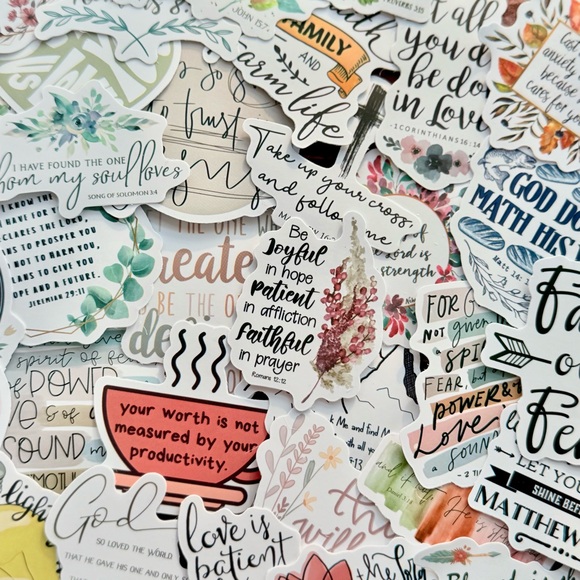 JOHN 15:7
FAMILY
AND
farm life
all
you do
be done
in Love
-1 CORINTHIANS 16:14
God
anxiety
because
cares for you
trust
I HAVE FOUND THE ONE
whom my soul loves
SONG OF SOLOMON 3:4
Take up your cross,
and follow
GOD DO
MATH HIS
KNOW THE
HAVE FOR
DECLARES THE LORD
NS TO PROSPER YOU
NOT TO HARM YOU,
LANS TO GIVE YOU
OPE AND A FUTURE.
JEREMIAH 29:11
THE ONE
BE THE
Be
Joyful
in hope
Patient
in affliction
Faithful
in prayer
Romans 12:12
word is
strength
FOR G
NOT given
SPI
FEAR,
POWER &
Love
a SOUND
2 TI
Fa
Fe
LET YOU
SHINE BEF
MATTHEW
spirit of fe
of POWER
SOUND
your worth is not
measured by your
productivity.
Me and find M
light
God
SO LOVED THE WORLD
THAT HE GAVE HIS ONE AND ONLY S
love is
patient
the
will